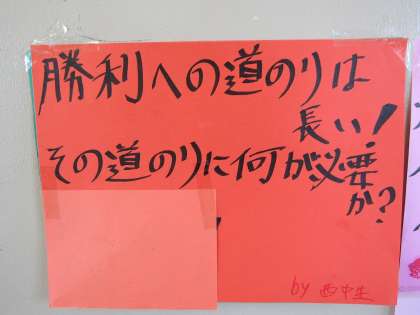 勝利への道のりは
長い!
その道のりに何が必要
か?
by 西中生